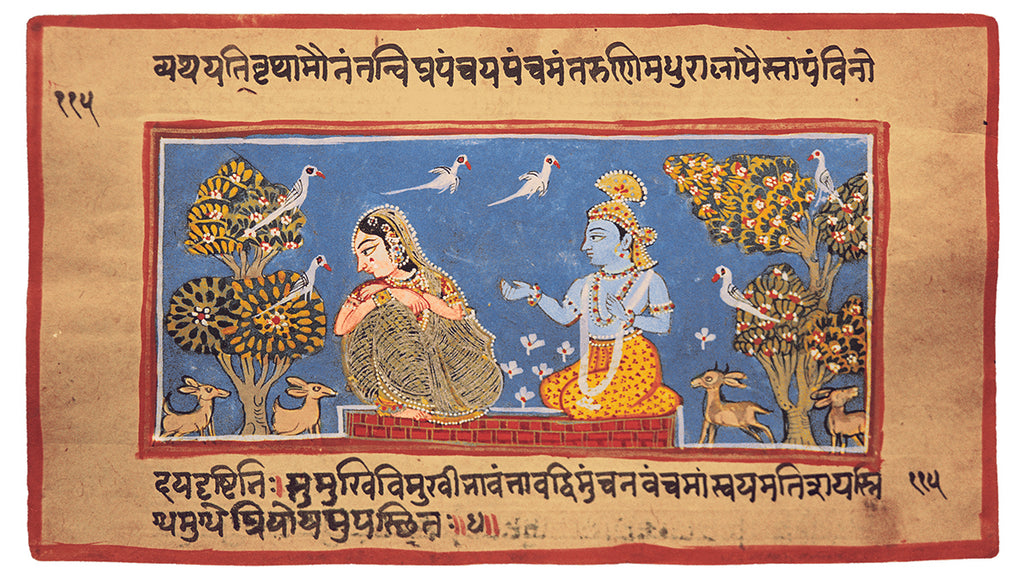 व्यथयतिवृथामौनंतन्विप्रपंचयपंचमंतरुणिमधुरालापैस्तापंविनो
११५
दयदृष्टिभिः।सुमुखिविमुखीभावंतावद्विमुंचनवंचमांस्वयमतिशयस्नि ११५
ग्धमुग्धेप्रियोयमुपस्थितः॥ध॥